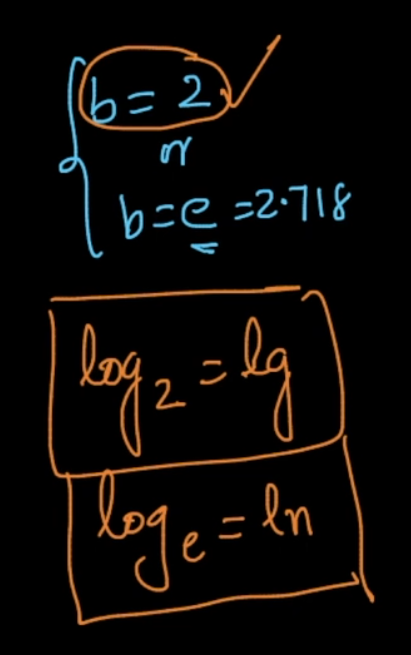 b = 2
or
b = e = 2.718
log₂ = lg
logₑ = ln